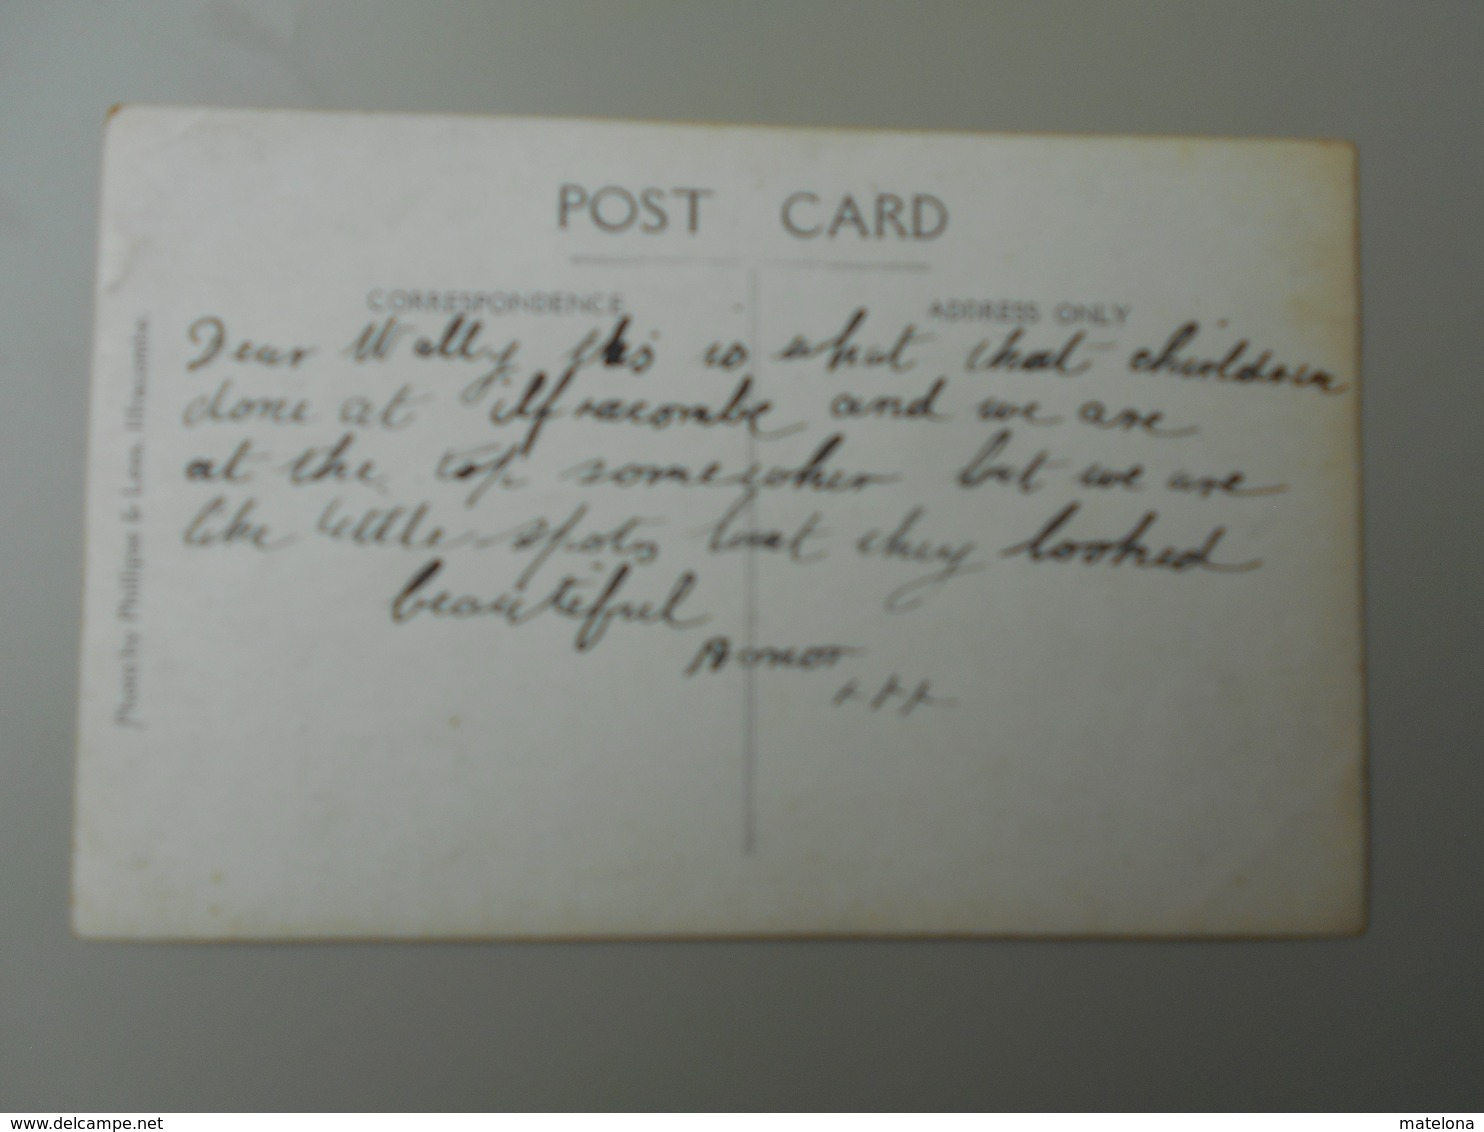 POST CARD
CORRESPONDENCE
ADDRESS ONLY
Dear Wally this is what that children
done at ilfracombe and we are
at the top somewher but we are
like little spots but they looked
beautiful
x x x
Photo by Phillipse & Lees, Ilfracombe.
www.delcampe.net
matelona